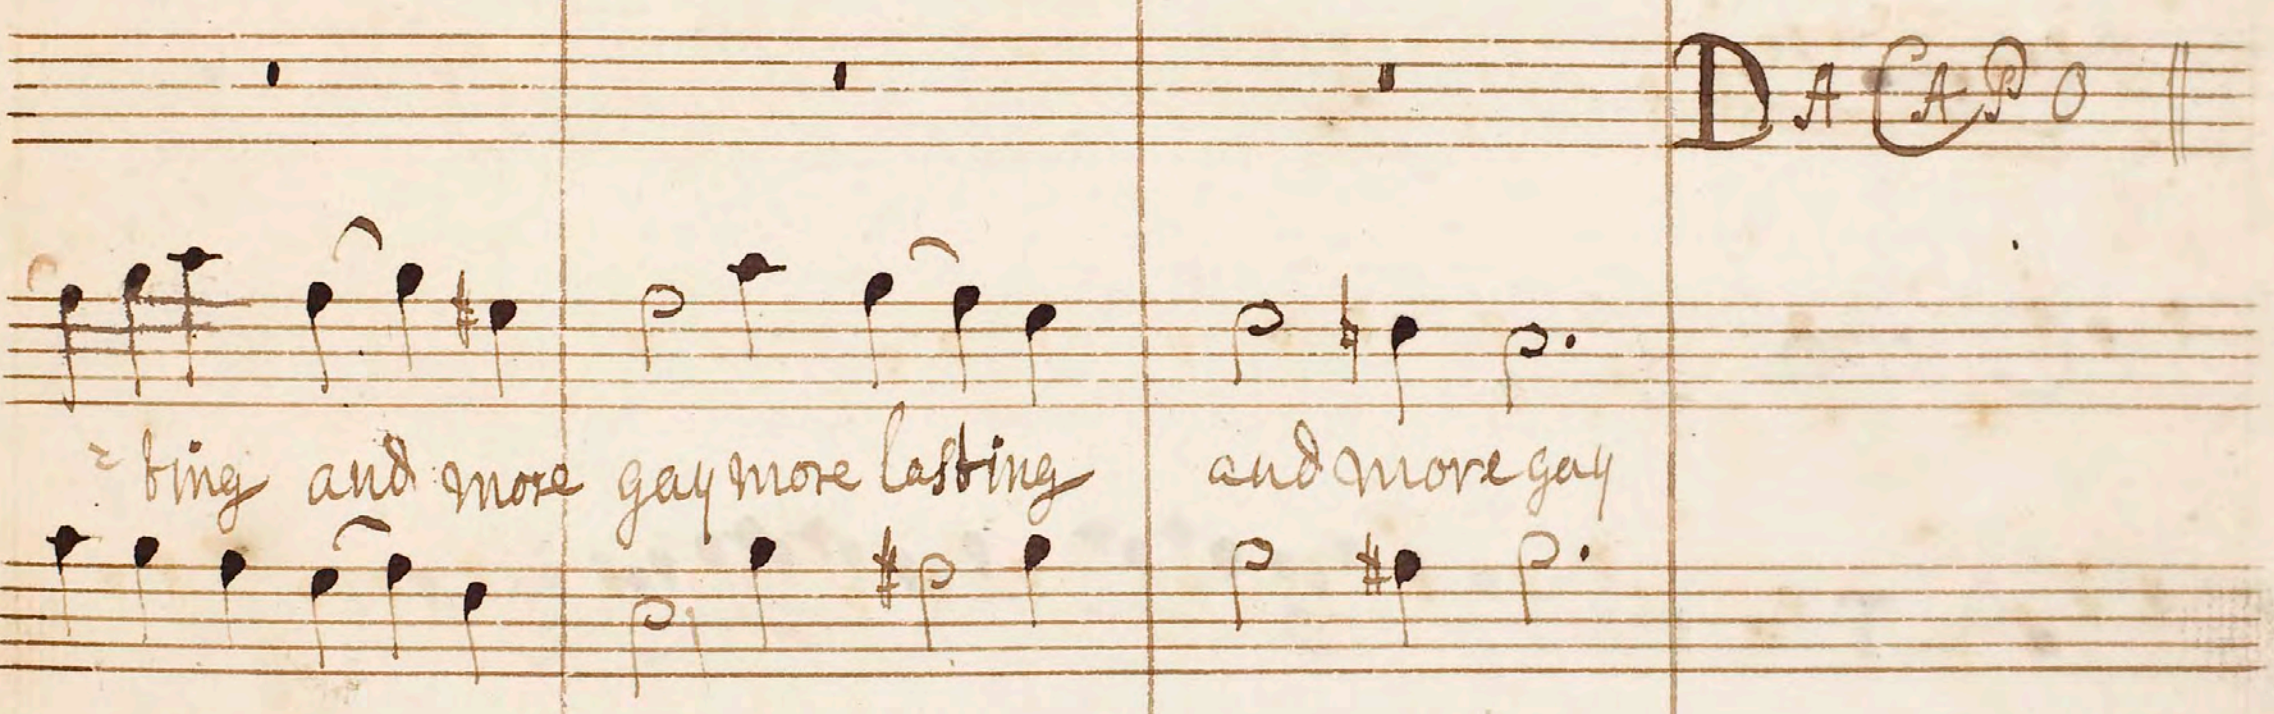 DA CAPO
= ting and more gay more lasting and more gay